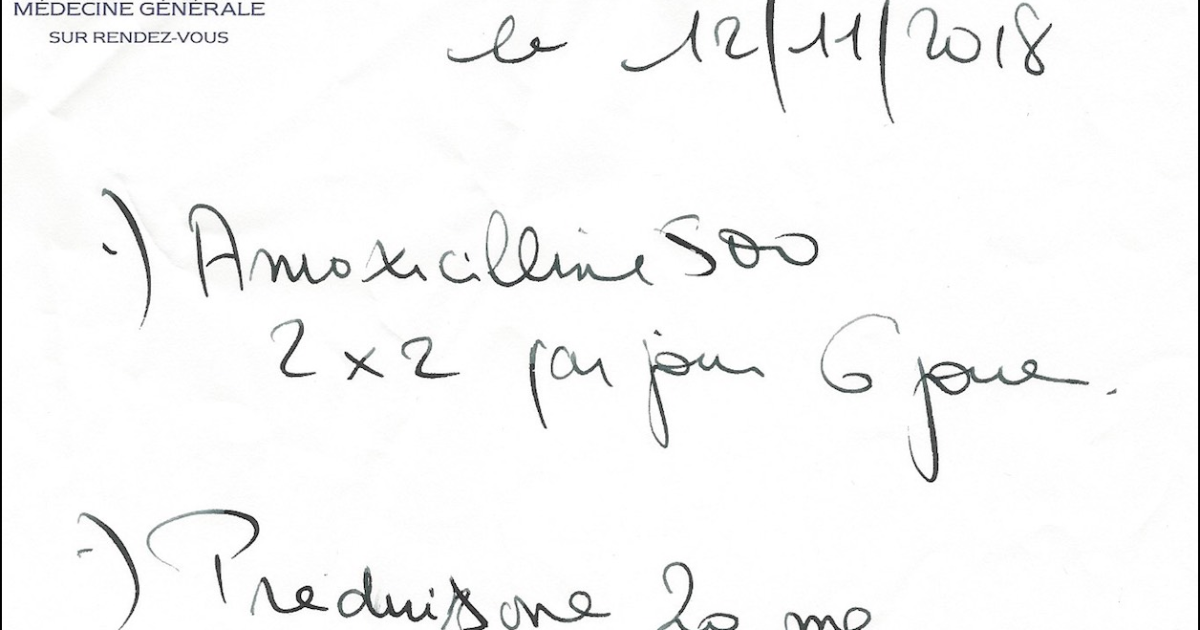 MÉDECINE GÉNÉRALE
SUR RENDEZ-VOUS
le 12/11/2018
-) Amoxicilline 500
2 x 2 par jour 6 jours.
-) Prednisone 20 mg